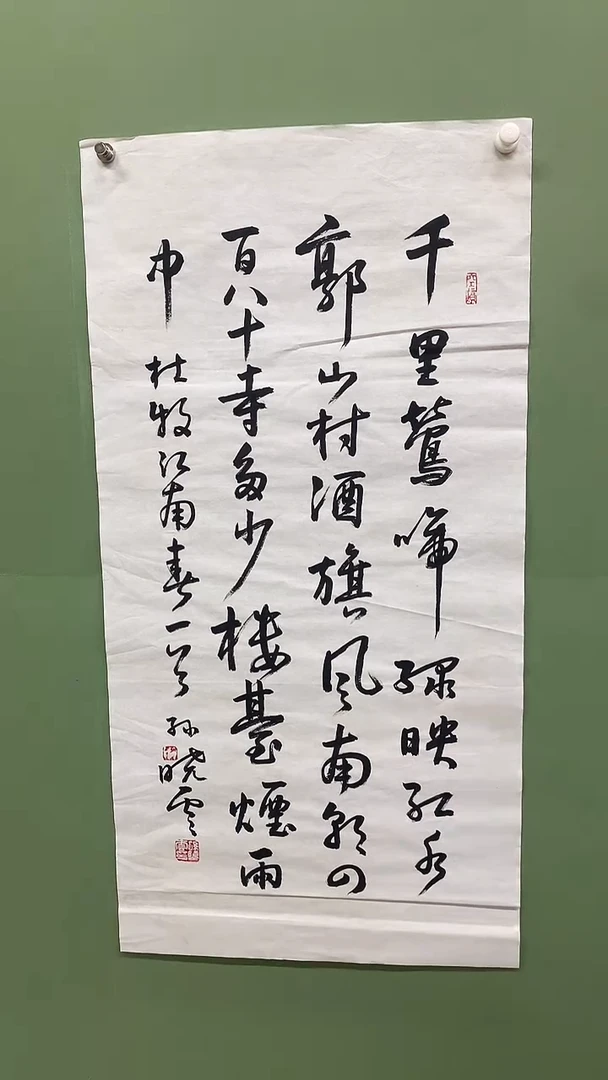 千里鶯啼綠映紅水
郭山村酒旗風南朝四
百八十寺多少樓臺煙雨
中
杜牧江南春一首 孫曉雲